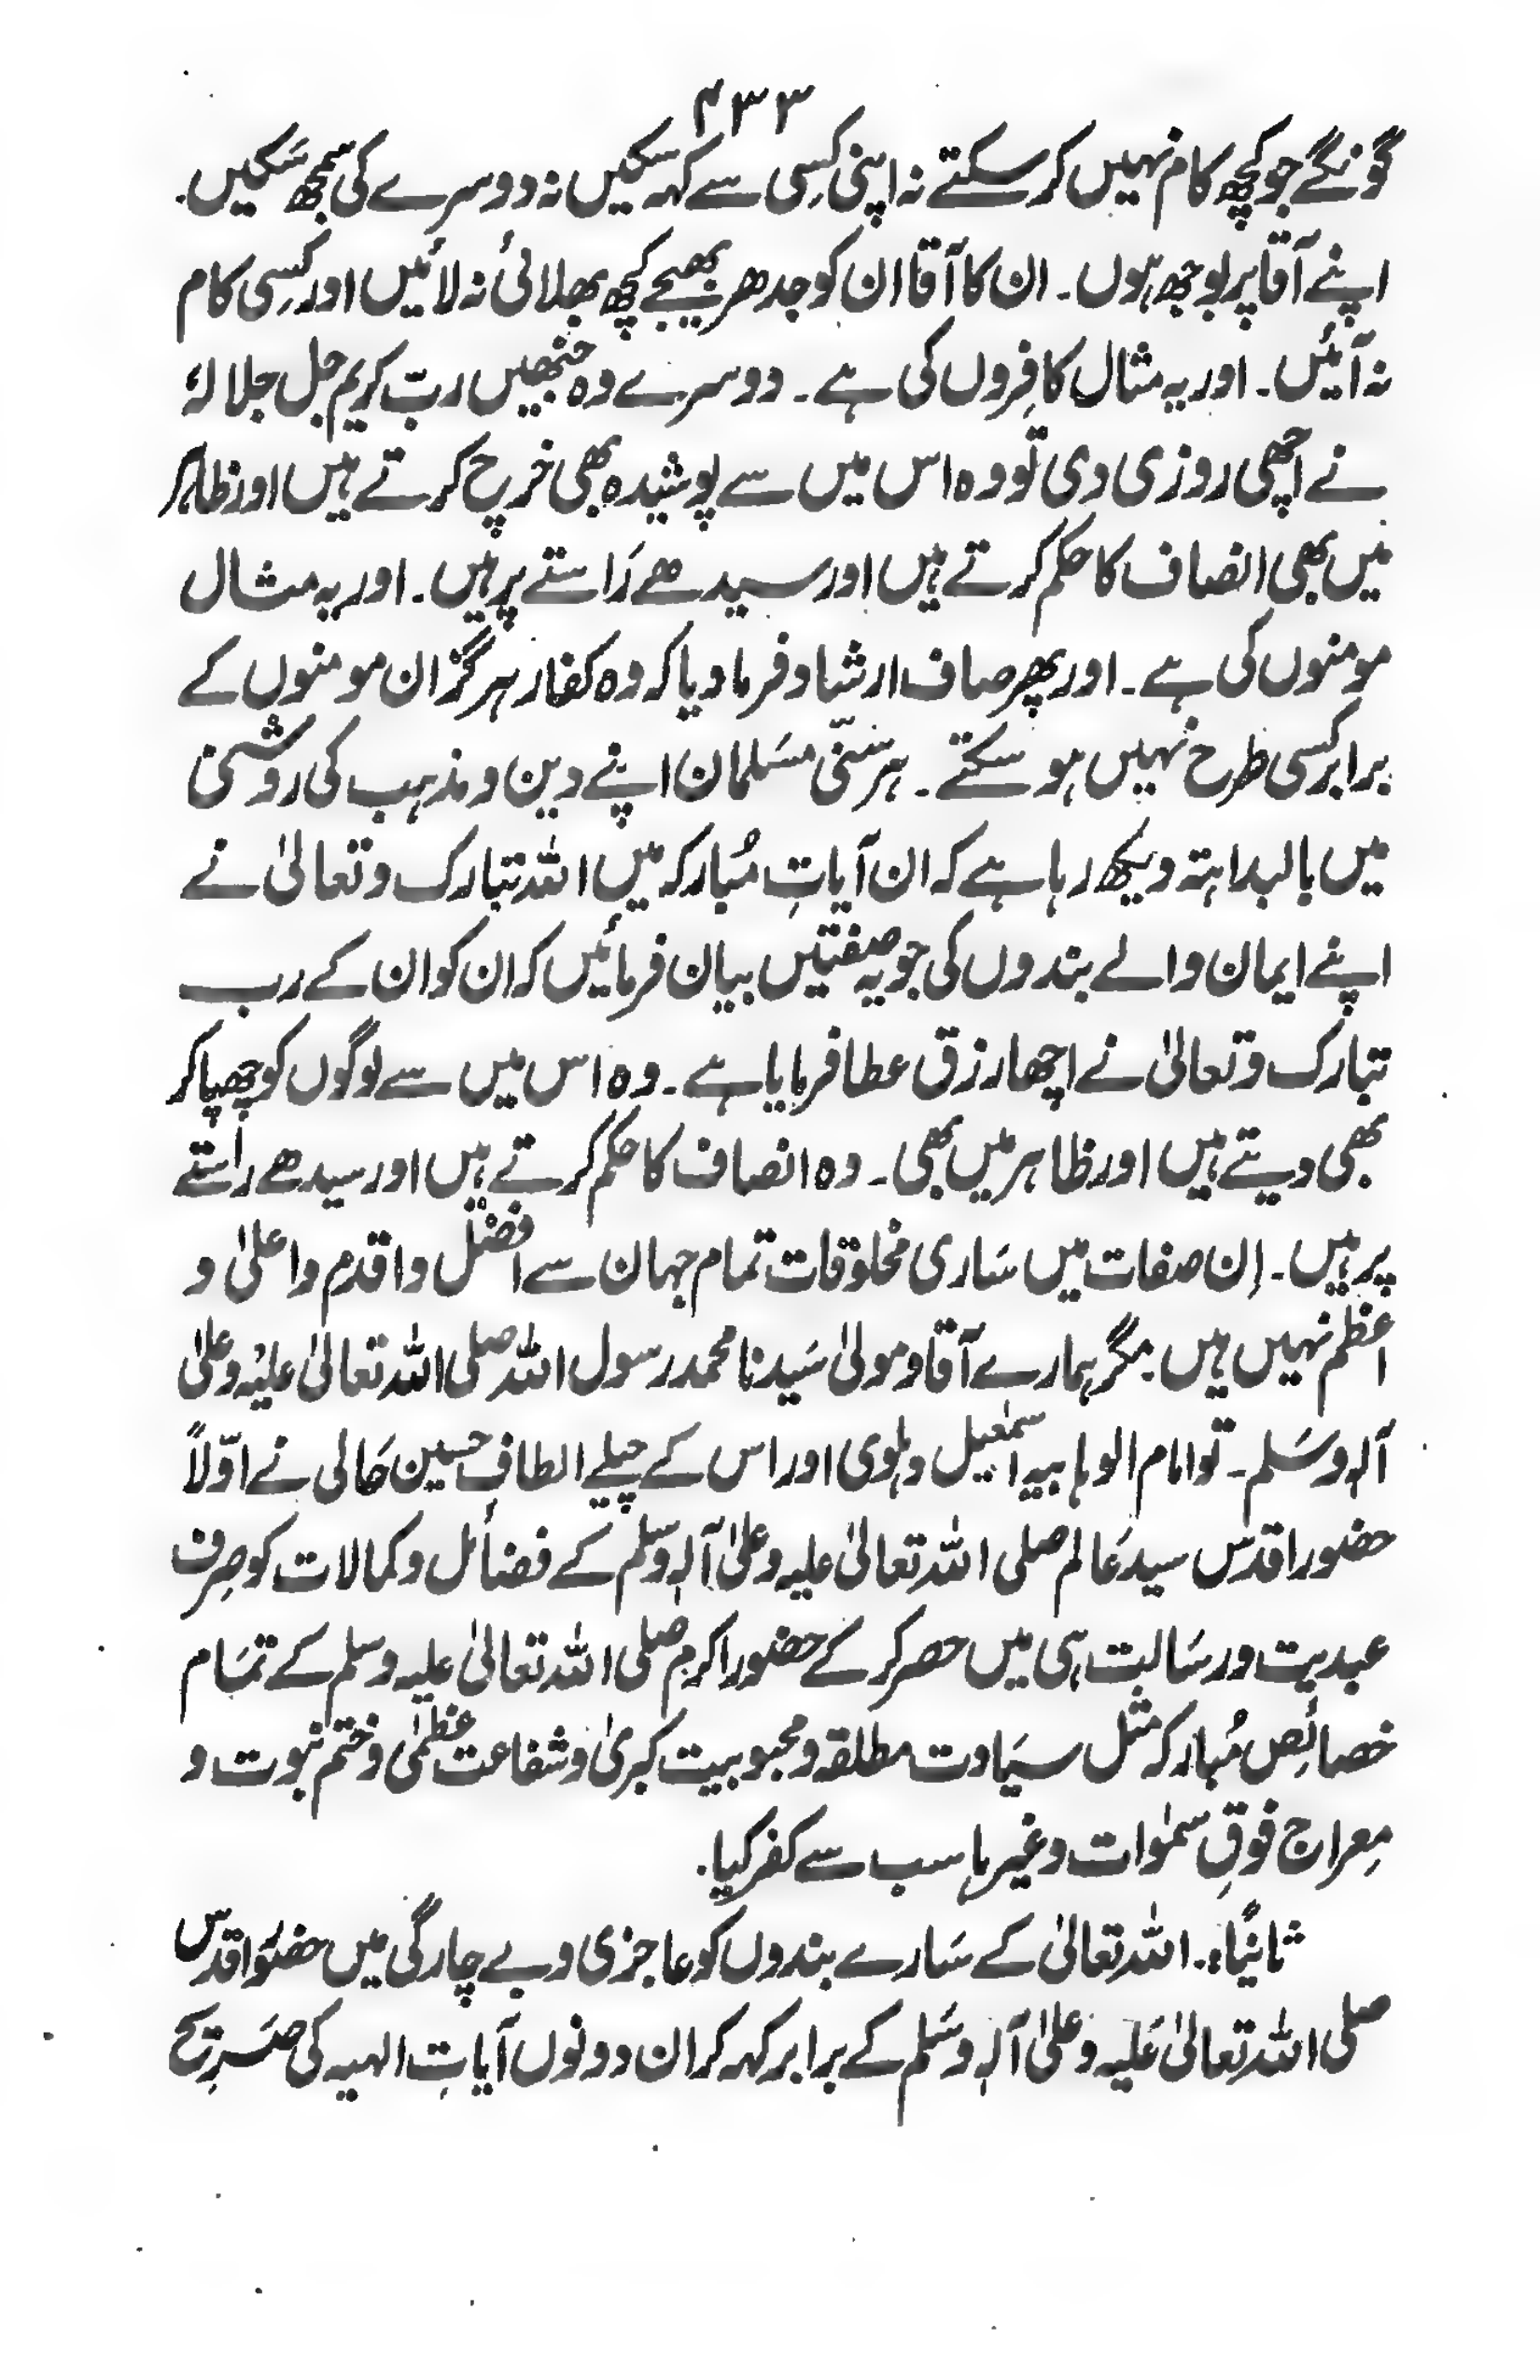 ۴۳۳
گونگے جو کچھ کام نہیں کر سکتے نہ اپنی کِسی سے کہہ سکیں نہ دوسرے کی سمجھ سَکیں.
اپنے آقا پر بوجھ ہوں۔ ان کا آقا ان کو جدھر بھیجے کچھ بھلائی نہ لائیں اور کِسی کام
نہ آئیں۔ اور یہ مثال کافِروں کی ہے۔ دوسرے وہ جنھیں ربّ کریم جل جلالہٗ
نے اچھی روزی دی تو وہ اس میں سے پوشیدہ بھی خرچ کرتے ہیں اور ظاہر
میں بھی انصاف کا حکم کرتے ہیں اور سیدھے رَاستے پر ہیں۔ اور یہ مثال
مومنوں کی ہے۔ اور پھر صاف ارشاد فرما دیا کہ وہ کفار ہرگز ان مومنوں کے
برابر کسی طرح نہیں ہو سکتے۔ ہر سنّی مسَلمان اپنے دین و مذہب کی روشنی
میں بالبداہتہ دیکھ رہا ہے کہ ان آیاتِ مُبارکہ میں اللہ تبارک و تعالیٰ نے
اپنے ایمان والے بندوں کی جو یہ صفتیں بیان فرمائیں کہ ان کو ان کے رب
تبارک و تعالیٰ نے اچھا رزق عطا فرمایا ہے۔ وہ اس میں سے لوگوں کو چھپا کر
بھی دیتے ہیں اور ظاہر میں بھی۔ وہ انصاف کا حکم کرتے ہیں اور سیدھے راستے
پر ہیں۔ اِن صفات میں سَاری مخلوقات تمام جہان سے افضل و اقدم و اعلیٰ و
اعظم نہیں ہیں. مگر ہمارے آقا و مولیٰ سَیدنا محمد رسول اللہ صلی اللہ تعالیٰ علیْہ وعلیٰ
آلہٖ وسَلم۔ تو امام الوہابیہ اسمٰعیل دہلوی اور اس کے چیلے الطاف حسین حَالی نے اوّلاً
حضور اقدس سید عَالم صلی اللہ تعالیٰ علیہ وعلیٰ آلہٖ وسلم کے فضائل و کمالات کو صِرف
عبدیت و رسَالت ہی میں حصر کر کے حضور اکرم صلی اللہ تعالیٰ علیہ وسلم کے تمَام
خصائِص مُبارکہ مثل سیَادت مطلقہ و محبوبیت کبریٰ و شفاعت عظمٰی و ختم نبوت و
مِعراج فوقِ سمٰوات وغیرہا سب سے کفر کیا.
ثانیًا۔ اللہ تعالیٰ کے سَارے بندوں کو عاجزی و بے چارگی میں حضور اقدس
صلی اللہ تعالیٰ عَلیہ وعلیٰ آلہٖ وسَلم کے برابر کہہ کر ان دونوں آیاتِ الہیہ کی صَریح